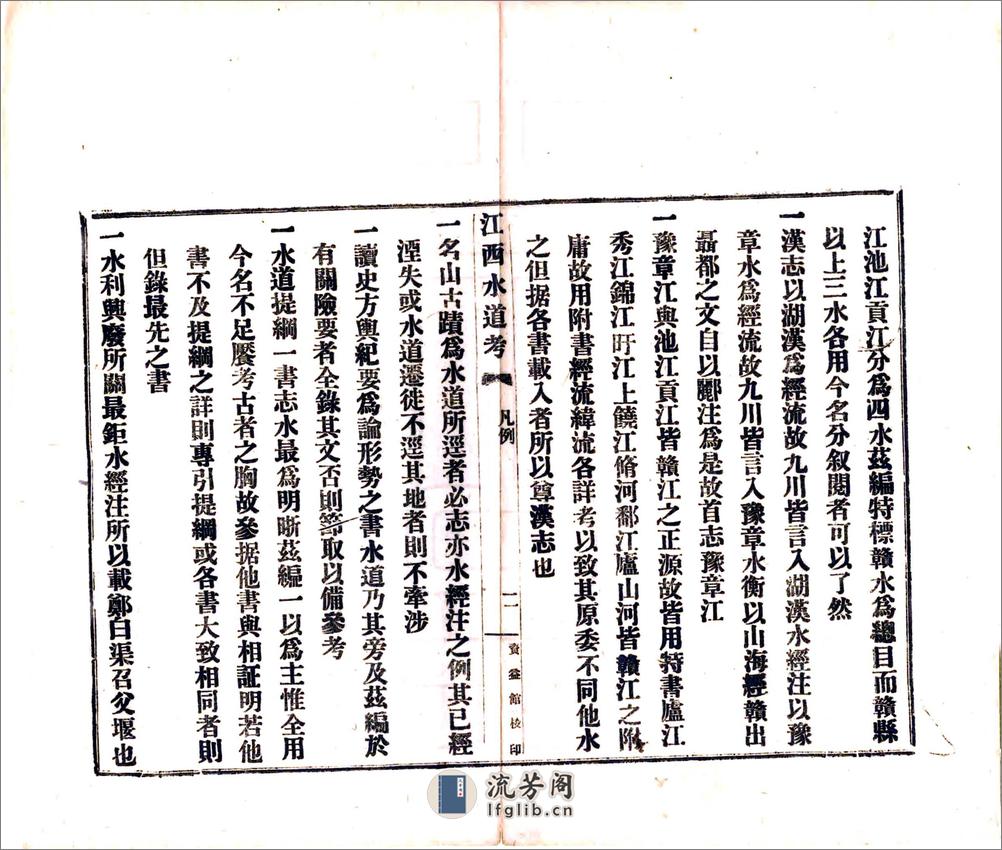 江池江貢江分爲四水茲編特標贛水爲總目而贛縣
以上三水各用今名分叙閱者可以了然
一漢志以湖漢爲經流故九川皆言入湖漢水經注以豫
章水爲經流故九川皆言入豫章水衡以山海經贛出
聶都之文自以酈注爲是故首志豫章江
一豫章江與池江貢江皆贛江之正源故皆用特書廬江
秀江錦江旴江上饒江脩河鄱江廬山河皆贛江之附
庸故用附書經流緯流各詳考以致其原委不同他水
之但据各書載入者所以尊漢志也
江西水道考
凡例
二
資益館校印
一名山古蹟爲水道所逕者必志亦水經注之例其已經
湮失或水道遷徙不逕其地者則不牽涉
一讀史方輿紀要爲論形勢之書水道乃其旁及茲編於
有關險要者全錄其文否則節取以備參考
一水道提綱一書志水最爲明晰茲編一以爲主惟全用
今名不足饜考古者之胸故參据他書與相証明若他
書不及提綱之詳則專引提綱或各書大致相同者則
但錄最先之書
一水利興廢所關最鉅水經注所以載鄭白渠召父堰也
流芳阁
lfglib.cn